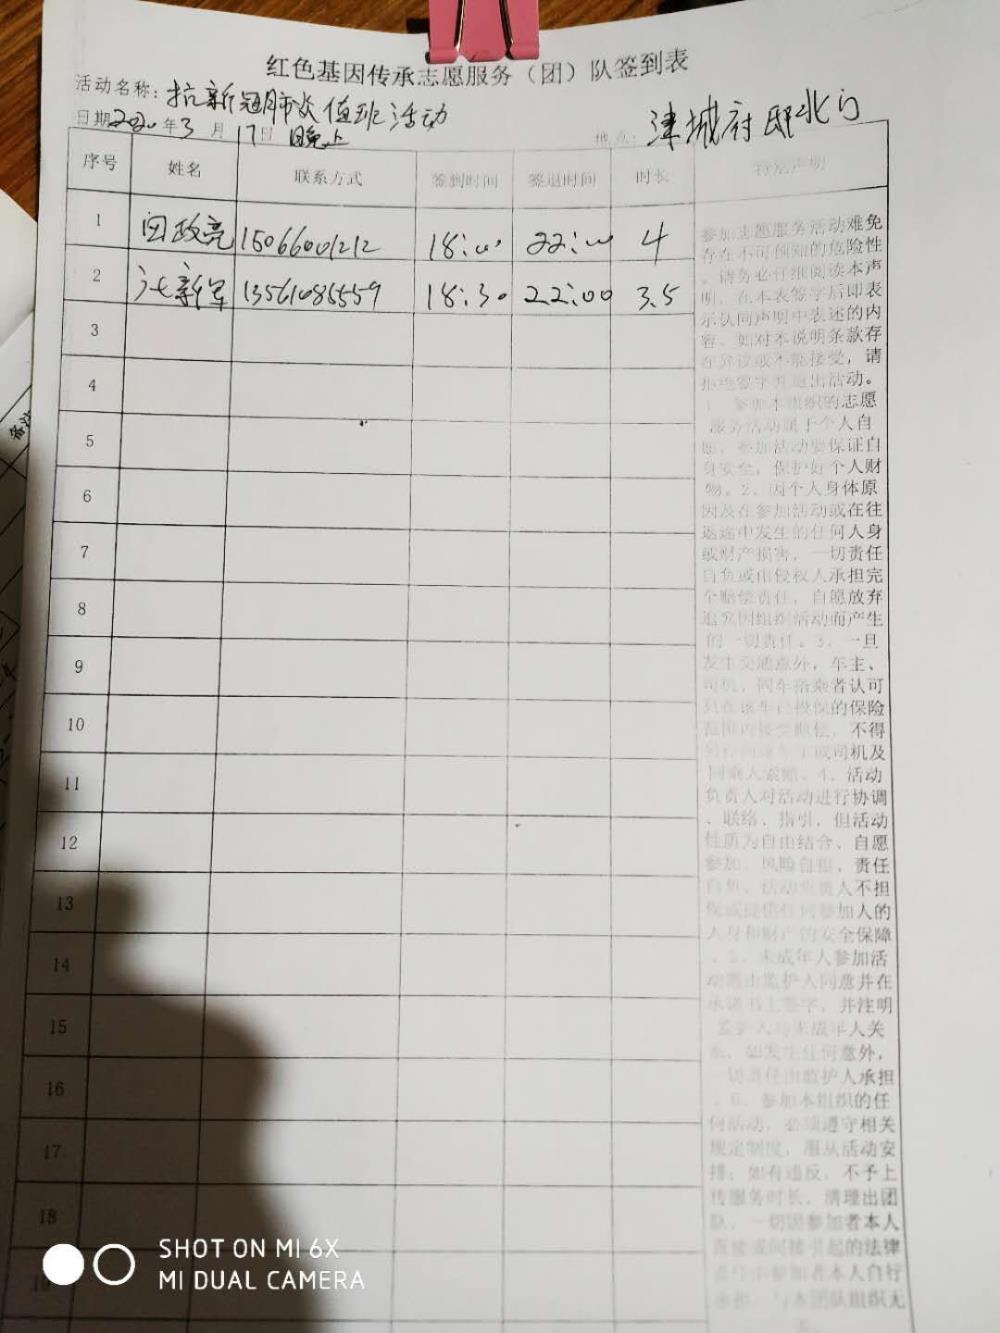 红色基因传承志愿服务（团）队签到表
活动名称：抗新冠肺炎值班活动
日期2020年3月17日 晚上 地点：津城府邸北门
序号 姓名 联系方式 签到时间 签退时间 时长 特别声明
1 田政亮 15066001212 18:00 22:00 4
2 新军 13561085559 18:30 22:00 3.5
3
4
5
6
7
8
9
10
11
12
13
14
15
16
17
18
19
参加志愿服务活动难免
存在不可预知的危险性
，请务必仔细阅读本声
明，在本表签字后即表
示认同声明中表述的内
容。如对本说明条款存
在异议或不能接受，请
拒绝签字并退出活动。
1、参加本组织的志愿
服务活动属于个人自
愿，参加活动要保证自
身安全，保护好个人财
物。2、因个人身体原
因及在参加活动或在往
返途中发生的任何人身
或财产损害，一切责任
自负或由侵权人承担完
全赔偿责任，自愿放弃
追究因组织活动而产生
的一切责任。3、一旦
发生交通意外，车主、
司机、同车搭乘者认可
只在该车已投保的保险
范围内接受赔偿，不得
司机及
同乘人索赔。4、活动
负责人对活动进行协调
、联络、指引，但活动
性质为自由结合、自愿
参加、风险自担、责任
自负，活动负责人不担
保或提供任何参加人的
人身和财产的安全保障
。5、未成年人参加活
动需由监护人同意并在
承诺书上签字，并注明
监护人与未成年人关
系，如发生任何意外，
一切责任由监护人承担
。6、参加本组织的任
何活动，必须遵守相关
规定制度，服从活动安
排；如有违反，不予上
传服务时长，清理出团
队，一切因参加者本人
直接或间接引起的法律
责任由参加者本人自行
承担，与本团队组织无
备注
SHOT ON MI 6X
MI DUAL CAMERA